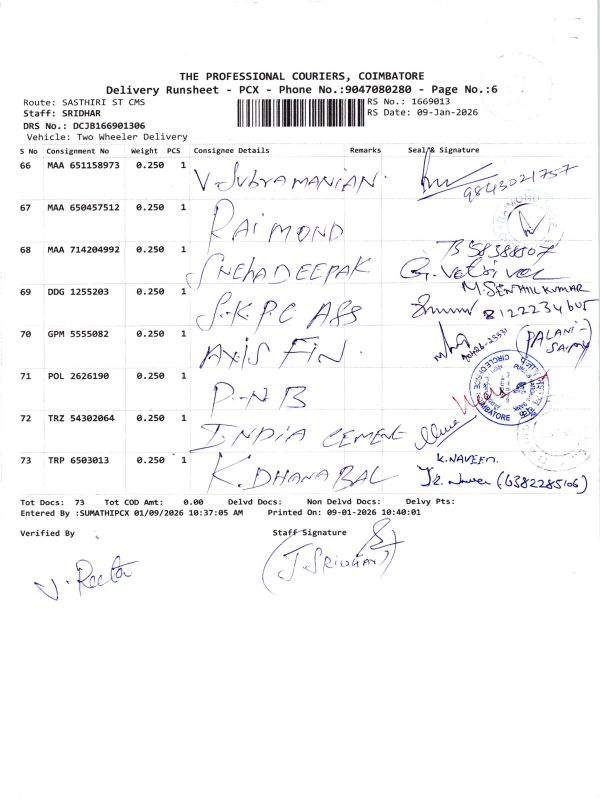 THE PROFESSIONAL COURIERS, COIMBATORE
Delivery Runsheet - PCX - Phone No.:9047080280 - Page No.:6
Route: SASTHIRI ST CMS
RS No.: 1669013
Staff: SRIDHAR
RS Date: 09-Jan-2026
DRS No.: DCJB166901306
Vehicle: Two Wheeler Delivery
S No Consignment No Weight PCS Consignee Details Remarks Seal & Signature
66 MAA 651158973 0.250 1 V. SUBRAMANIAN. 9843021757
67 MAA 650457512 0.250 1 RAIMOND
68 MAA 714204992 0.250 1 SNEHADEEPAK G. Vetrivel
69 DDG 1255203 0.250 1 S.K.P.C ASS M. SENTHILKUMAR
8122234605
70 GPM 5555082 0.250 1 AXIS FIN. (PALANI-
71 POL 2626190 0.250 1 P.N.B
72 TRZ 54302064 0.250 1 INDIA CEMENT
73 TRP 6503013 0.250 1 K. DHANABAL K. NAVEEN.
(6382285106)
Tot Docs: 73 Tot COD Amt: 0.00 Delvd Docs: Non Delvd Docs: Delvy Pts:
Entered By :SUMATHIPCX 01/09/2026 10:37:05 AM Printed On: 09-01-2026 10:40:01
Verified By Staff Signature
V. Reeta (J. SRIDHAR)